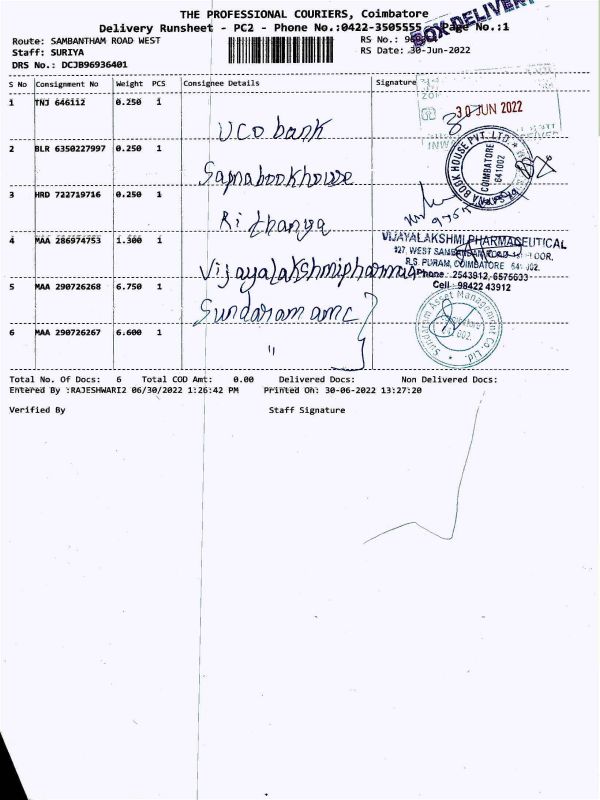 THE PROFESSIONAL COURIERS, Coimbatore
BOX DELIVERY
Delivery Runsheet - PC2 - Phone No.:0422-3505555 Page No.:1
Route: SAMBANTHAM ROAD WEST RS No.:
Staff: SURIYA RS Date: 30-Jun-2022
DRS No.: DCJB96936401
S No Consignment No Weight PCS Consignee Details Signature
1 TNJ 646112 0.250 1 UCO bank
30 JUN 2022
2 BLR 6350227997 0.250 1 Sapnabookhouse
SAPNA BOOK HOUSE PVT. LTD.
COIMBATORE
641002
3 HRD 722719716 0.250 1 Rithanya
4 MAA 286974753 1.300 1 Vijayalakshmipharma
VIJAYALAKSHMI PHARMACEUTICAL
R.S. PURAM, COIMBATORE
Phone : 2543912, 6575633
Cell : 98422 43912
5 MAA 290726268 6.750 1 Sundaram amc
Sundaram Asset Management Co. Ltd.
6 MAA 290726267 6.600 1 "
Total No. Of Docs: 6 Total COD Amt: 0.00 Delivered Docs: Non Delivered Docs:
Entered By :RAJESHWARI2 06/30/2022 1:26:42 PM Printed On: 30-06-2022 13:27:20
Verified By Staff Signature